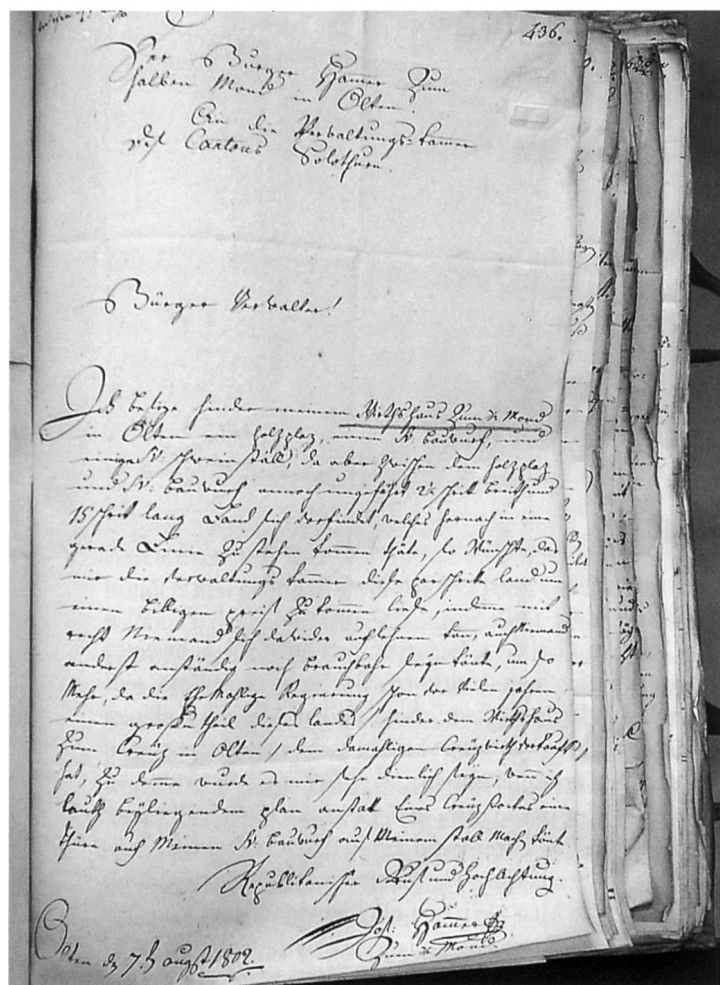 436.
Der Burger Hammer Zum
halben Mond in Olten.
An die Verwaltungs-Kamer
des Cantons Solothurn.
Bürger Verwalter!
Ich besize hinder meinem Wirthshaus Zum ½ Mond
in Olten ein holzplaz, einen Sv. bauwurf, und
einige Sv. schweinställ, da aber zwischen dem holzplaz
und Sv. bauwurf annoch ungefährt 2½ schrit breith und
15 schrit lang Land sich befindet, welches hernach in eine
gerade Linie zu stehen kommen thäte, so Wünschte, das
mir die Verwaltungs Kamer diese par schrite land um
einen billigen preiß zu kommen ließe, indeme mit
recht Niemand sich dawider auflehnen kan, auch Niemand
anderst anständig noch brauchbahr seyn könte, um so
Mehr, da die Ehemahlige Regierung schon vor Vielen jahren
einen großen theil dieses lands hinder dem Wirthshaus
Zum Creüz in Olten, dem damahligen Creüzwirth verkauft
hat, zu deme wurde es mir sehr dienlich seyn, wenn ich
lauth beyliegendem plan anstat Eines Creüzstockes eine
thüre auf Meinen Sv. bauwurf aus Meinem stall Mach könte
Republikanischer Gruß und Hochachtung.
Jos: Hammer
Zum ½ Mond.
Olten d 7. augst 1802.